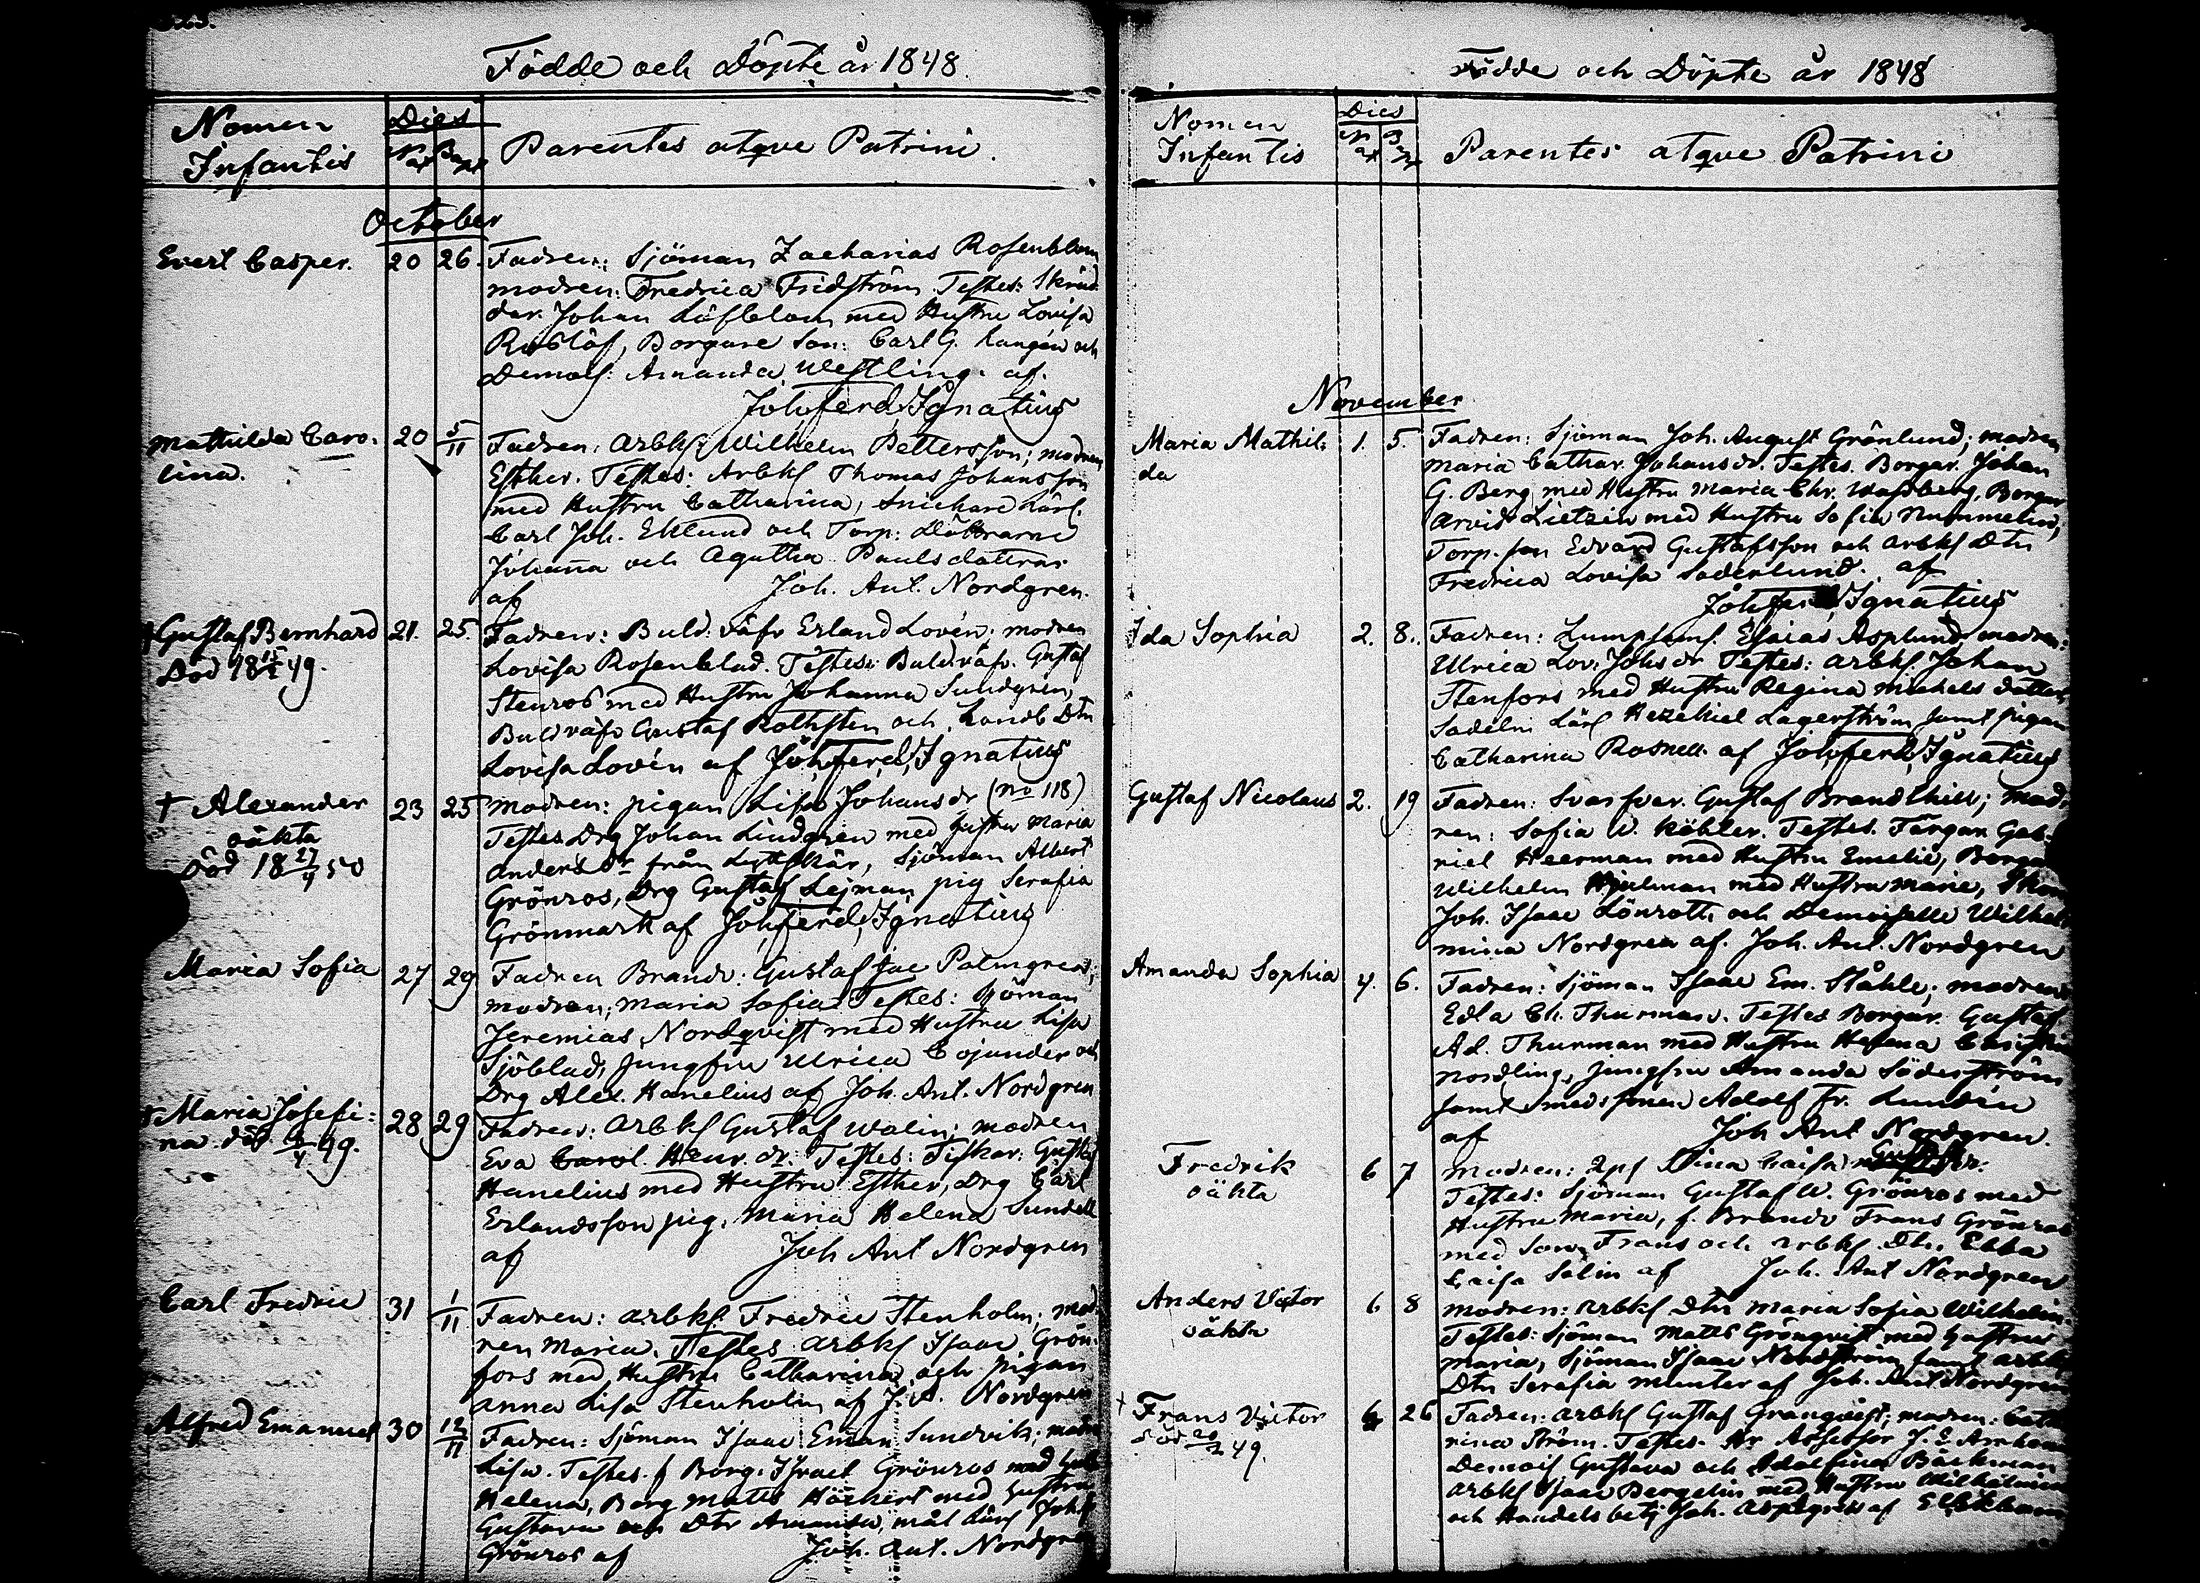 Födde och Döpte år 1848
Nomen Infantis
Dies
Nat Bapt
Parentes atqve Patrini.
October
Evert Casper. 20 26. Fadren: Sjöman Zacharias Rosenblom
modren: Fredrica Fridström. Testes: Skräd-
dar. Johan Löfblom med Hustru Lovisa
Borgare Son: Carl G. Langén och
Demois: Amanda Westling. af.
Joh ferd Ignatius
Mathilda Caro- 20 5/11 Fadren: Arbks Wilhelm Pettersson; modren
lina. Esther. Testes: Arbks Thomas Johansson
med Hustru Catharina, Snickare Lärl.
Carl Joh. Eklund och Torp: Döttrarne
Johanna och Agatha Paulsdöttrar
af Joh. Ant. Nordgren.
Gustaf Bernhard 21. 25. Fadren: Buld: väfv Erland Lovén; modren
Död 18 49. Lovisa Rosenblad. Testes: Buldväfv. Gustaf
Stenros med Hustru Johanna Sundgren,
Buldväfv Gustaf Rothsten och Landb Dtr
Lovisa Lovén af Joh ferd Ignatius
† Alexander 23 25 Modren: pigan Lisa Johansdr (No 118)
oäkta Testes Drg Johan Lindgren med hustru Maria
Död 18 27/4 50 Andersdr från Lyttskär, Sjöman Albert
Grönros, Drg Gustaf Lejman pig Serafia
Grönmark af Joh ferd Ignatius
Maria Sofia 27 29 Fadren Brandv: Gustaf Jac Palmgren;
modren; Maria Sofia Testes: Sjöman
Jeremias Nordqvist med Hustru Lisa
Sjöblad, Jungfru Ulrica Cojander och
Drg Alex. Hanelius af Joh. Ant. Nordgren
† Maria Josefi- 28 29 Fadren: Arbks Gustaf Walin; modren
na. död 49. Eva Carol. Henr. dr. Testes: Fiskar: Gustaf
Hanelius med Hustru Esther, Drg Carl
Erlandsson pig. Maria Helena Sundell
af Joh Ant Nordgren
Carl Fredric 31 1/11 Fadren: Arbks: Fredric Stenholm; mod-
ren Maria. Testes Arbks Isaac Grön-
fors med Hustru Catharina och pigan
Anna Lisa Stenholm af J. A. Nordgren
Alfred Emanuel 30 12/11 Fadren: Sjöman Isaac Eman Sundvik, modr
Lisa. Testes. f Borg. Israel Grönros med Hust
Helena, Borg Matts Höckert med Hustru
Gustava och Dtr Amanda, mål Lärl Joh
Grönros af Joh. Ant. Nordgren
Födde och Döpte år 1848
Nomen Infantis
Dies
Nat Bapt
Parentes atqve Patrini
November
Maria Mathil- 1. 5. Fadren: Sjöman Joh. August Grönlund; modren
da Maria Cathar. Johansdr. Testes. Borgar. Johan
G. Berg med Hustru Maria Chr. Wassberg, Borgar
Arvid Lietzén med Hustru Sofia Nummelin,
Torp. son Edvard Gustafsson och Arbks Dtr
Fredrica Lovisa Söderlund. af
Joh ferd Ignatius
Ida Sophia 2. 8. Fadren: Lumpsaml. Esaias Asplund modren:
Ulrica Lov. Johsdr Testes: Arbks Johan
Stenfors med Hustru Regina Michels dotter,
Sadelm Lärl Hezekiel Lagerström samt pigan
Catharina Rosnell af Joh ferd Ignatius
Gustaf Nicolaus 2. 19 Fadren: Svarfvar. Gustaf Brandthill; mod-
ren: Sofia W. Köhler. Testes. Färgan Gab-
riel Heerman med Hustru Emelie, Borgar
Wilhelm Hjulman med Hustru Marie, Skom
Joh. Isaac Lönroth och Demoiselle Wilhel-
mina Nordgren af. Joh. Ant. Nordgren
Amanda Sophia 4. 6. Fadren: Sjöman Isaac Em. Ståhle; modren
Edla Ch. Thurman. Testes Borgar. Gustaf
Ad. Thurman med Hustru Helena Christina
Nordling, Jungfru Amanda Söderström
samt smedssonen Adolf Fr. Lundén
af Joh Ant Nordgren.
Fredrik 6 7 Modren: Qps Stina Caisa
oäkta Testes: Sjöman Gustaf W. Grönros med
Hustru Maria, f. Brandv Frans Grönros
med Son Frans och Arbks Dtr. Ebba
Caisa Salin af Joh. Ant Nordgren
Anders Victor 6 8 Modren: Arbks Dtr Maria Sofia Wilhelm
oäkta Testes: Sjöman Matts Grönqvist med Hustru
Maria, Sjöman Isaac Nordström samt Arbks
Dtr Serafia Munter af Joh. Ant. Nordgren
† Frans Victor 6 26 Fadren: Arbks Gustaf Granqvist; modren: Catha
död 20/2 49. rina Ström. Testes. Hr Assessor J. E.
Demois Gustava och Adolfina Bäckman
Arbks Isaac Bergelin med Hustru Wilhelmina
och Handels betj Joh. Asplgren af